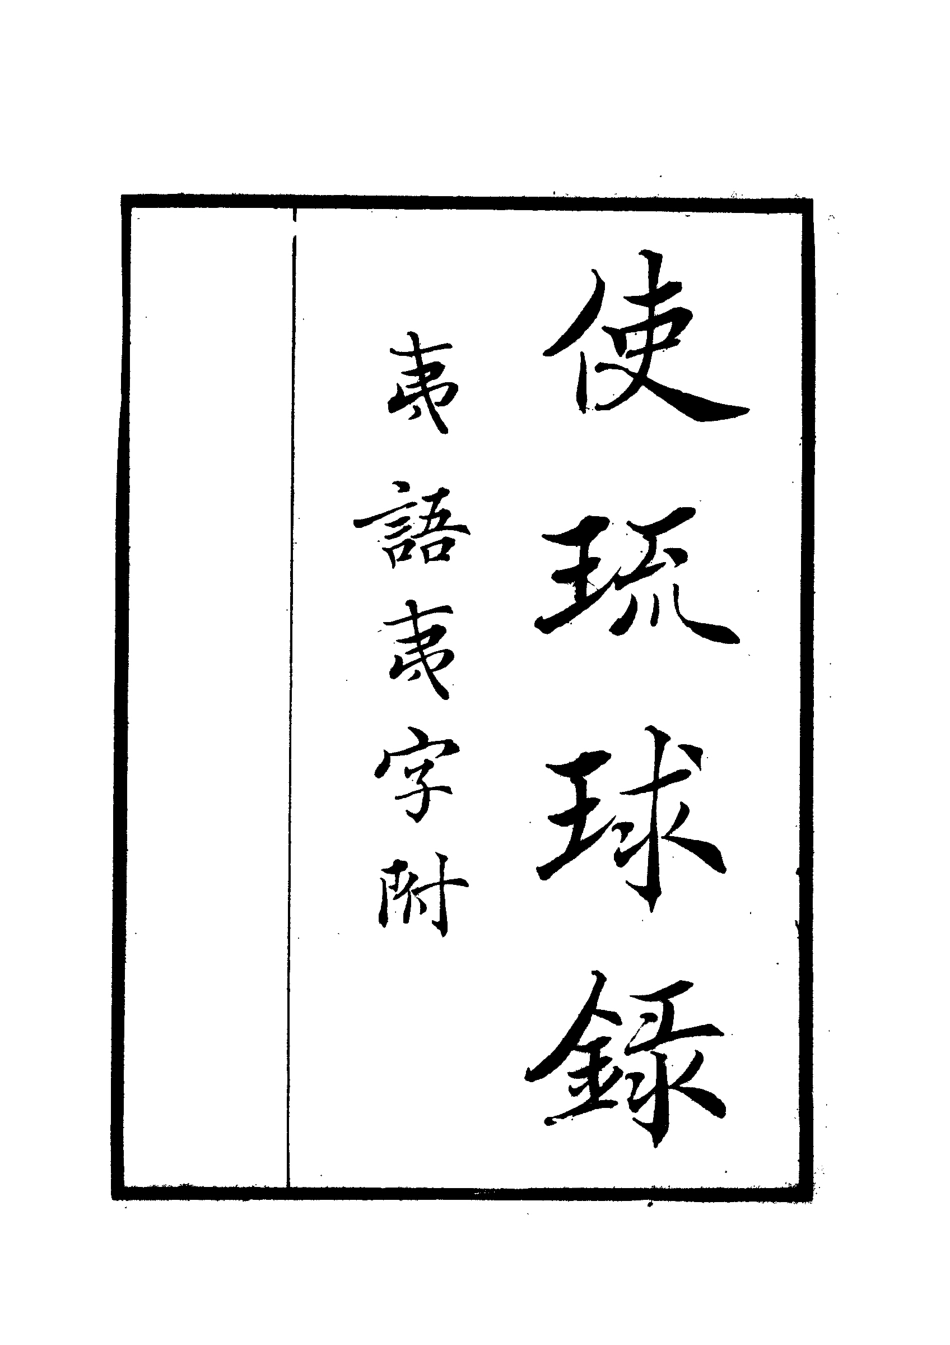 使琉球錄
夷語夷字附